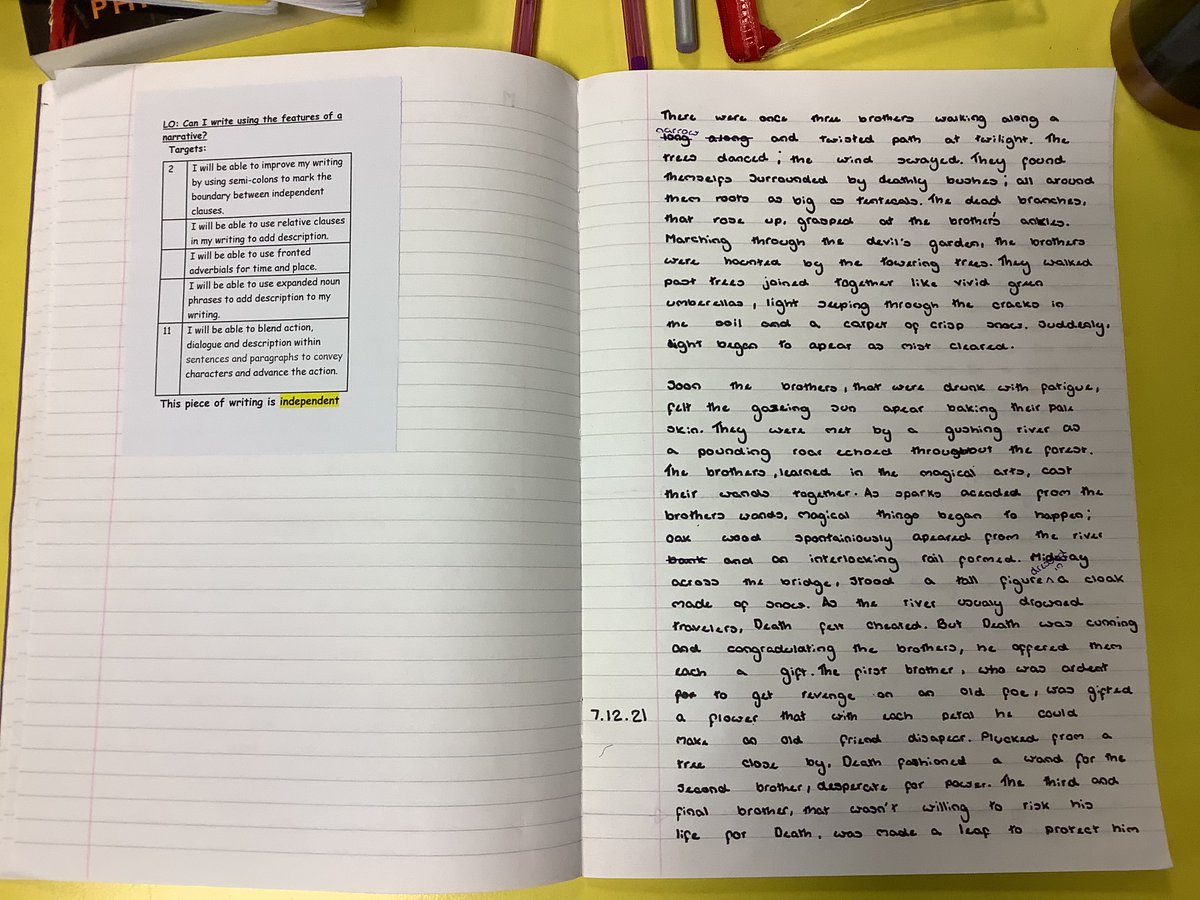 PH
LO: Can I write using the features of a
narrative?
Targets:
2 I will be able to improve my writing
by using semi-colons to mark the
boundary between independent
clauses.
I will be able to use relative clauses
in my writing to add description.
I will be able to use fronted
adverbials for time and place.
I will be able to use expanded noun
phrases to add description to my
writing.
11 I will be able to blend action,
dialogue and description within
sentences and paragraphs to convey
characters and advance the action.
This piece of writing is independent
There were once three brothers walking along a
narrow
long along and twisted path at twilight. The
trees danced; the wind swayed. They found
themselfs surrounded by deathly bushes; all around
them roots as big as tenticals. The dead branches,
that rose up, grasped at the brother's ankles.
Marching through the devil's garden, the brothers
were haunted by the towering trees. They walked
past trees joined together like vivid green
umberellas, light seeping through the cracks in
the soil and a carpet of crisp snow. Suddenly,
light began to apear as mist cleared.
Soon the brothers, that were drunk with fatigue,
felt the gazeing sun apear baking their pale
skin. They were met by a gushing river as
a pounding roar echoed throughout the forest.
The brothers, learned in the magical arts, cast
their wands together. As sparks acended from the
brothers wands, magical things began to happen;
oak wood spontainiously apeared from the river
bank and an interlocking rail formed. Midway
across the bridge, stood a tall figure dressed in a cloak
made of snow. As the river usualy drowned
travelers, Death felt cheated. But Death was cunning
and congradulating the brothers, he offered them
each a gift. The first brother, who was ardent
for to get revenge on an old foe, was gifted
7.12.21
a flower that with each petal he could
make an old friend disapear. Plucked from a
tree close by, Death fashioned a wand for the
second brother, desperate for power. The third and
final brother, that wasn't willing to risk his
life for Death, was made a leaf to protect him